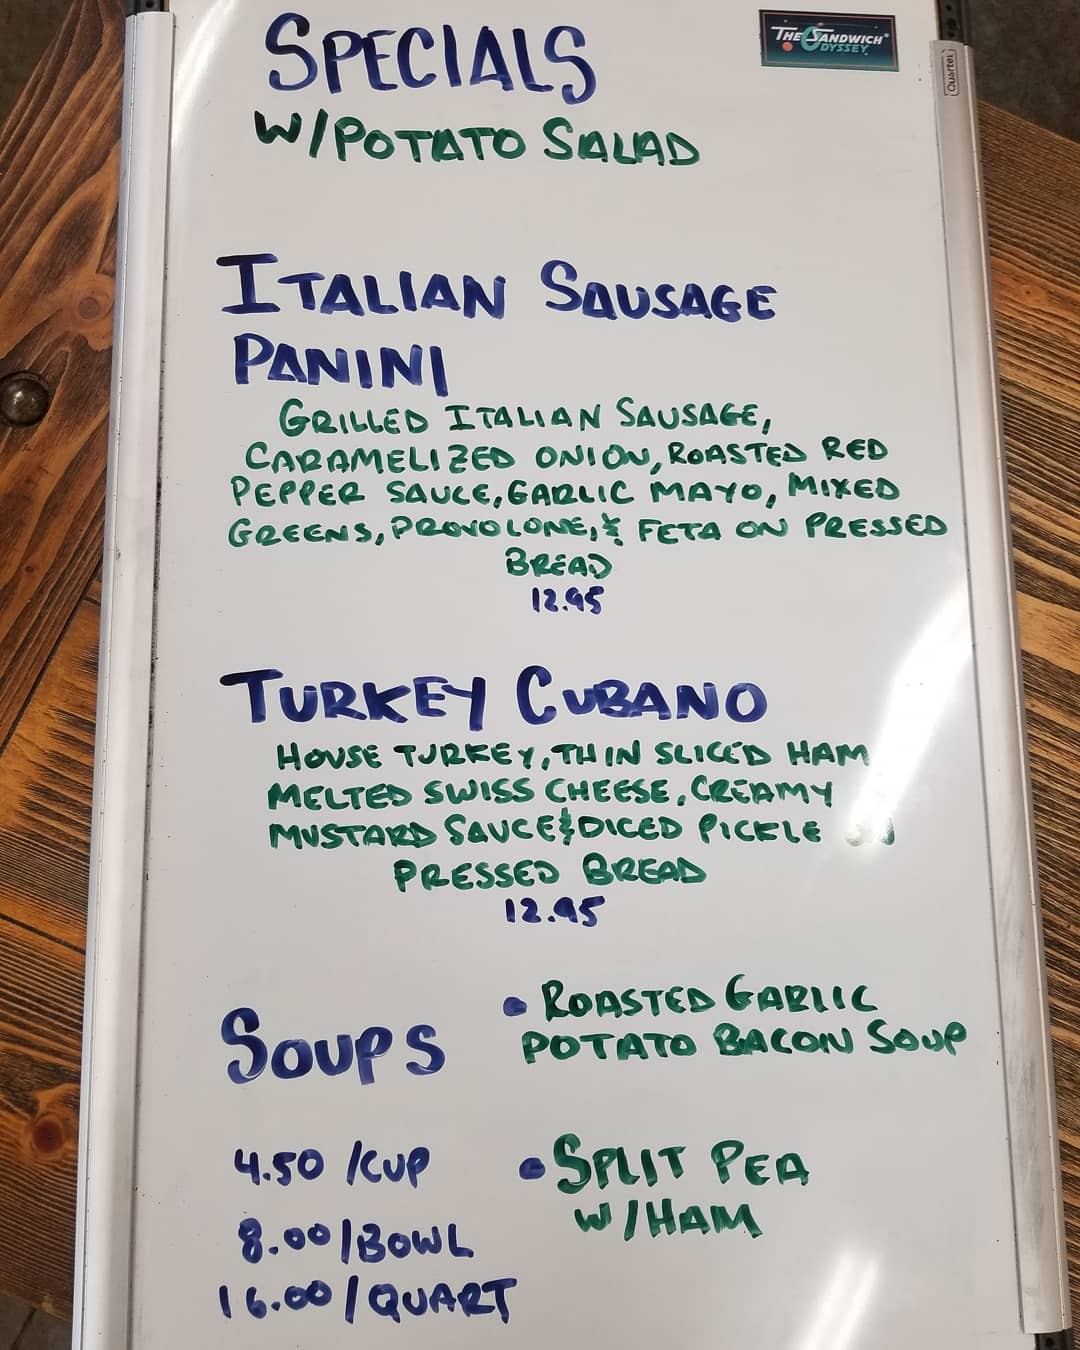 THE SANDWICH
ODYSSEY
Quartet
SPECIALS
W/POTATO SALAD
ITALIAN SAUSAGE
PANINI
GRILLED ITALIAN SAUSAGE,
CARAMELIZED ONION, ROASTED RED
PEPPER SAUCE, GARLIC MAYO, MIXED
GREENS, PROVOLONE, & FETA ON PRESSED
BREAD
12.95
TURKEY CUBANO
HOUSE TURKEY, THIN SLICED HAM
MELTED SWISS CHEESE, CREAMY
MUSTARD SAUCE & DICED PICKLE
PRESSED BREAD
12.95
SOUPS
• ROASTED GARLIC
POTATO BACON SOUP
• SPLIT PEA
W/HAM
4.50 /CUP
8.00/BOWL
16.00/QUART